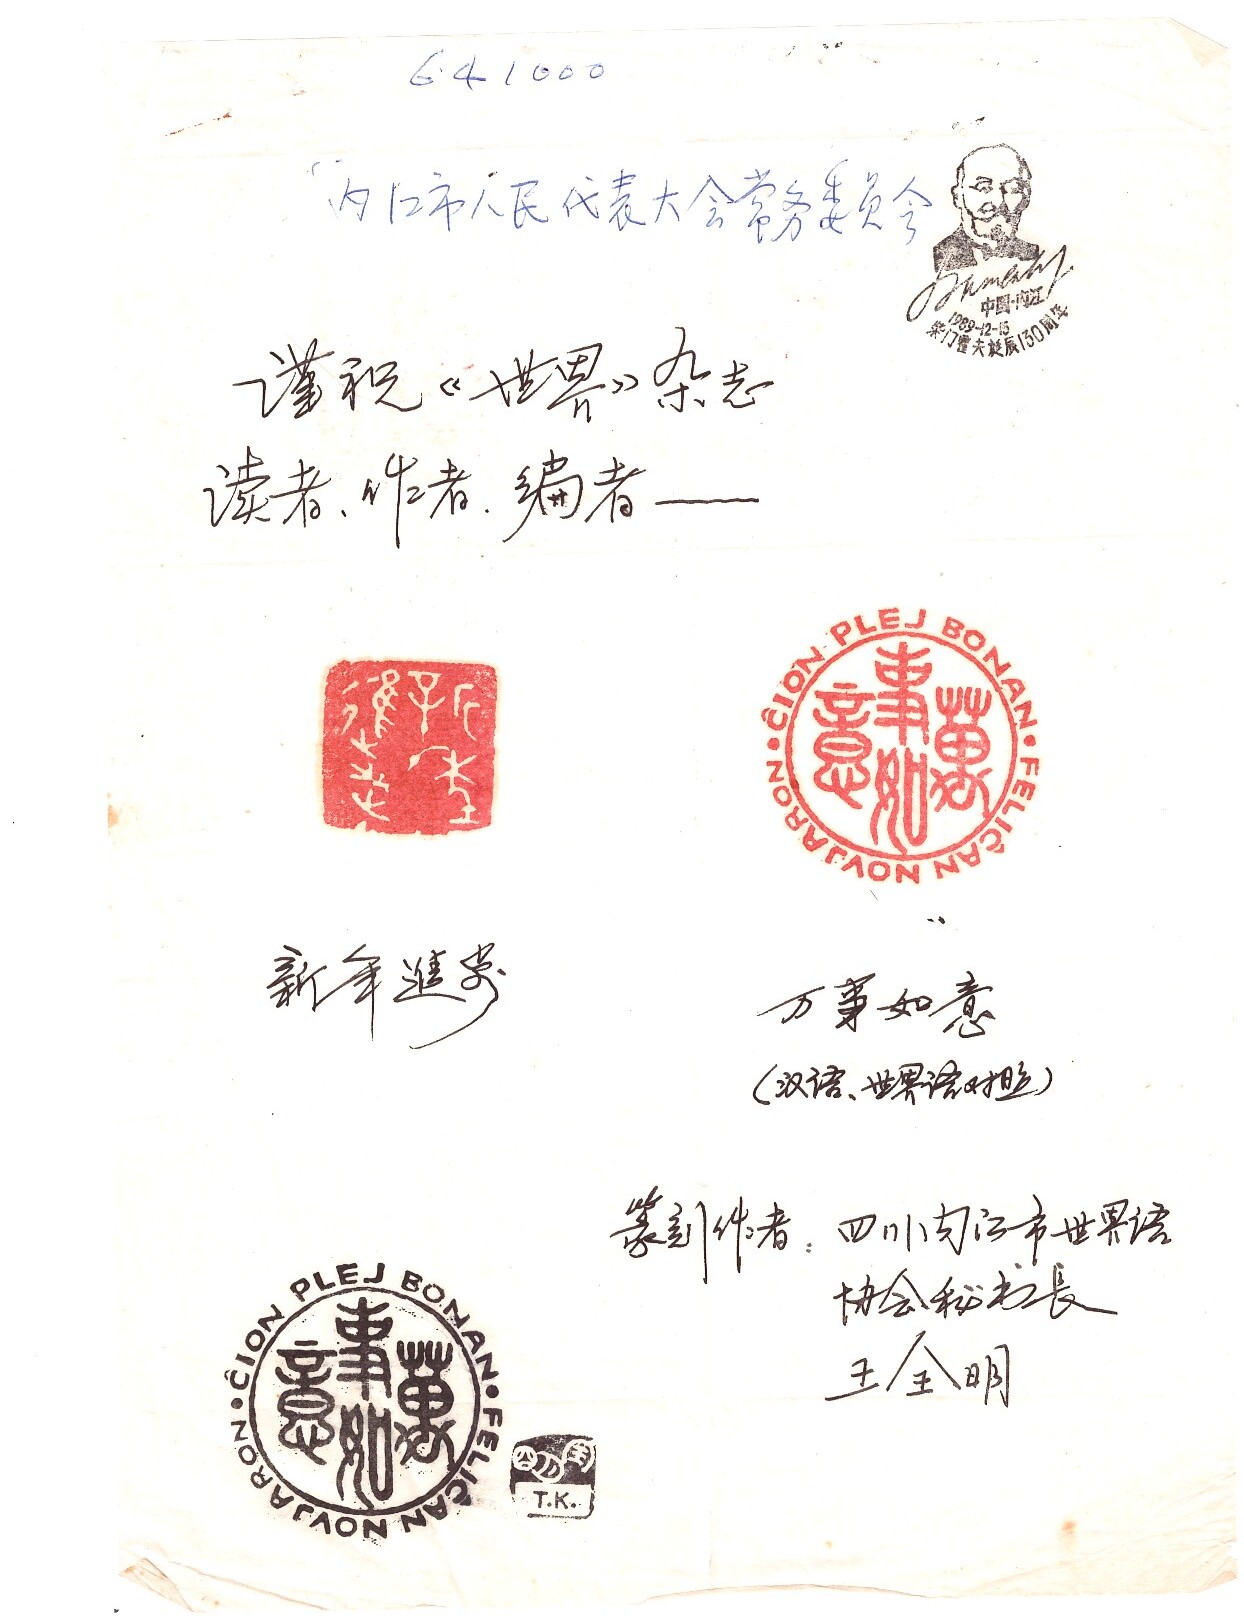 641000
内江市人民代表大会常务委员会
中国·内江
1989-12-15
柴门霍夫诞辰130周年
谨祝《世界》杂志
读者、作者、编者——
ĈION PLEJ BONAN • FELIĈAN NOVJARON •
萬事如意
新年進步
万事如意
(汉语、世界语对照)
篆刻作者:四川内江市世界语
协会秘书长
王全明
ĈION PLEJ BONAN • FELIĈAN NOVJARON •
萬事如意
T.K.